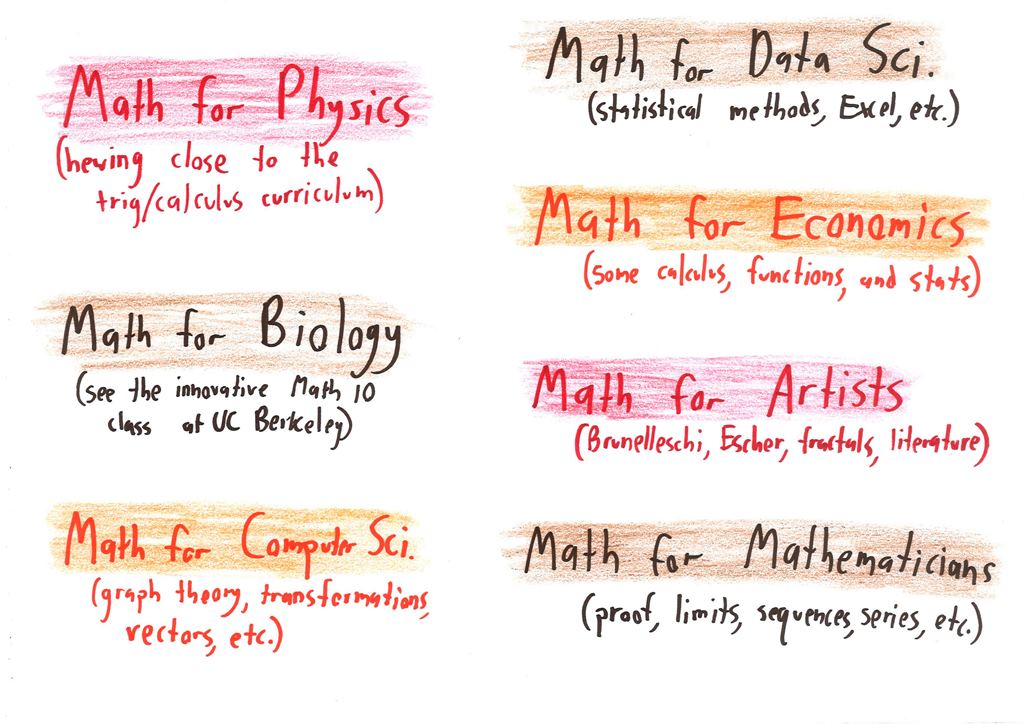 Math for Physics
(hewing close to the
trig/calculus curriculum)
Math for Biology
(see the innovative Math 10
class at UC Berkeley)
Math for Computer Sci.
(graph theory, transformations,
vectors, etc.)
Math for Data Sci.
(statistical methods, Excel, etc.)
Math for Economics
(some calculus, functions, and stats)
Math for Artists
(Brunelleschi, Escher, fractals, literature)
Math for Mathematicians
(proof, limits, sequences, series, etc.)